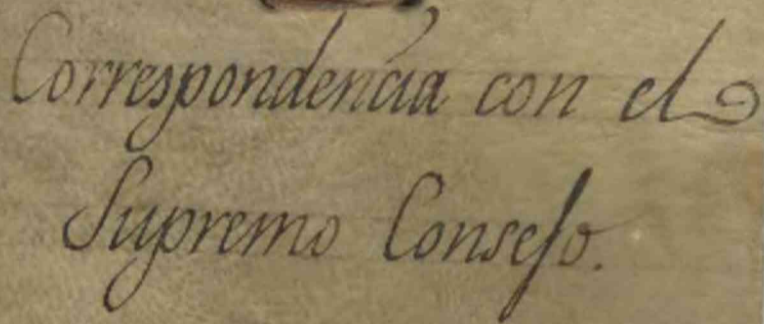 Correspondencia con el
Supremo Consejo.